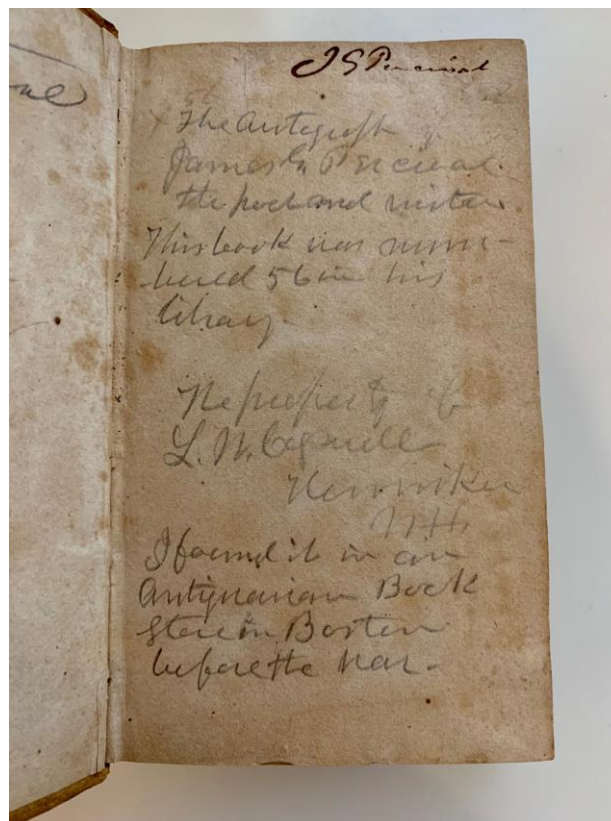 J G Percival
56
The Autograph of
James G. Percival
the poet and writer
This book was num-
bered 56 in his
library.
The property of
L. W. Cogswell
Henniker
N.H.
I found it in an
Antiquarian Book
Store in Boston
before the War.